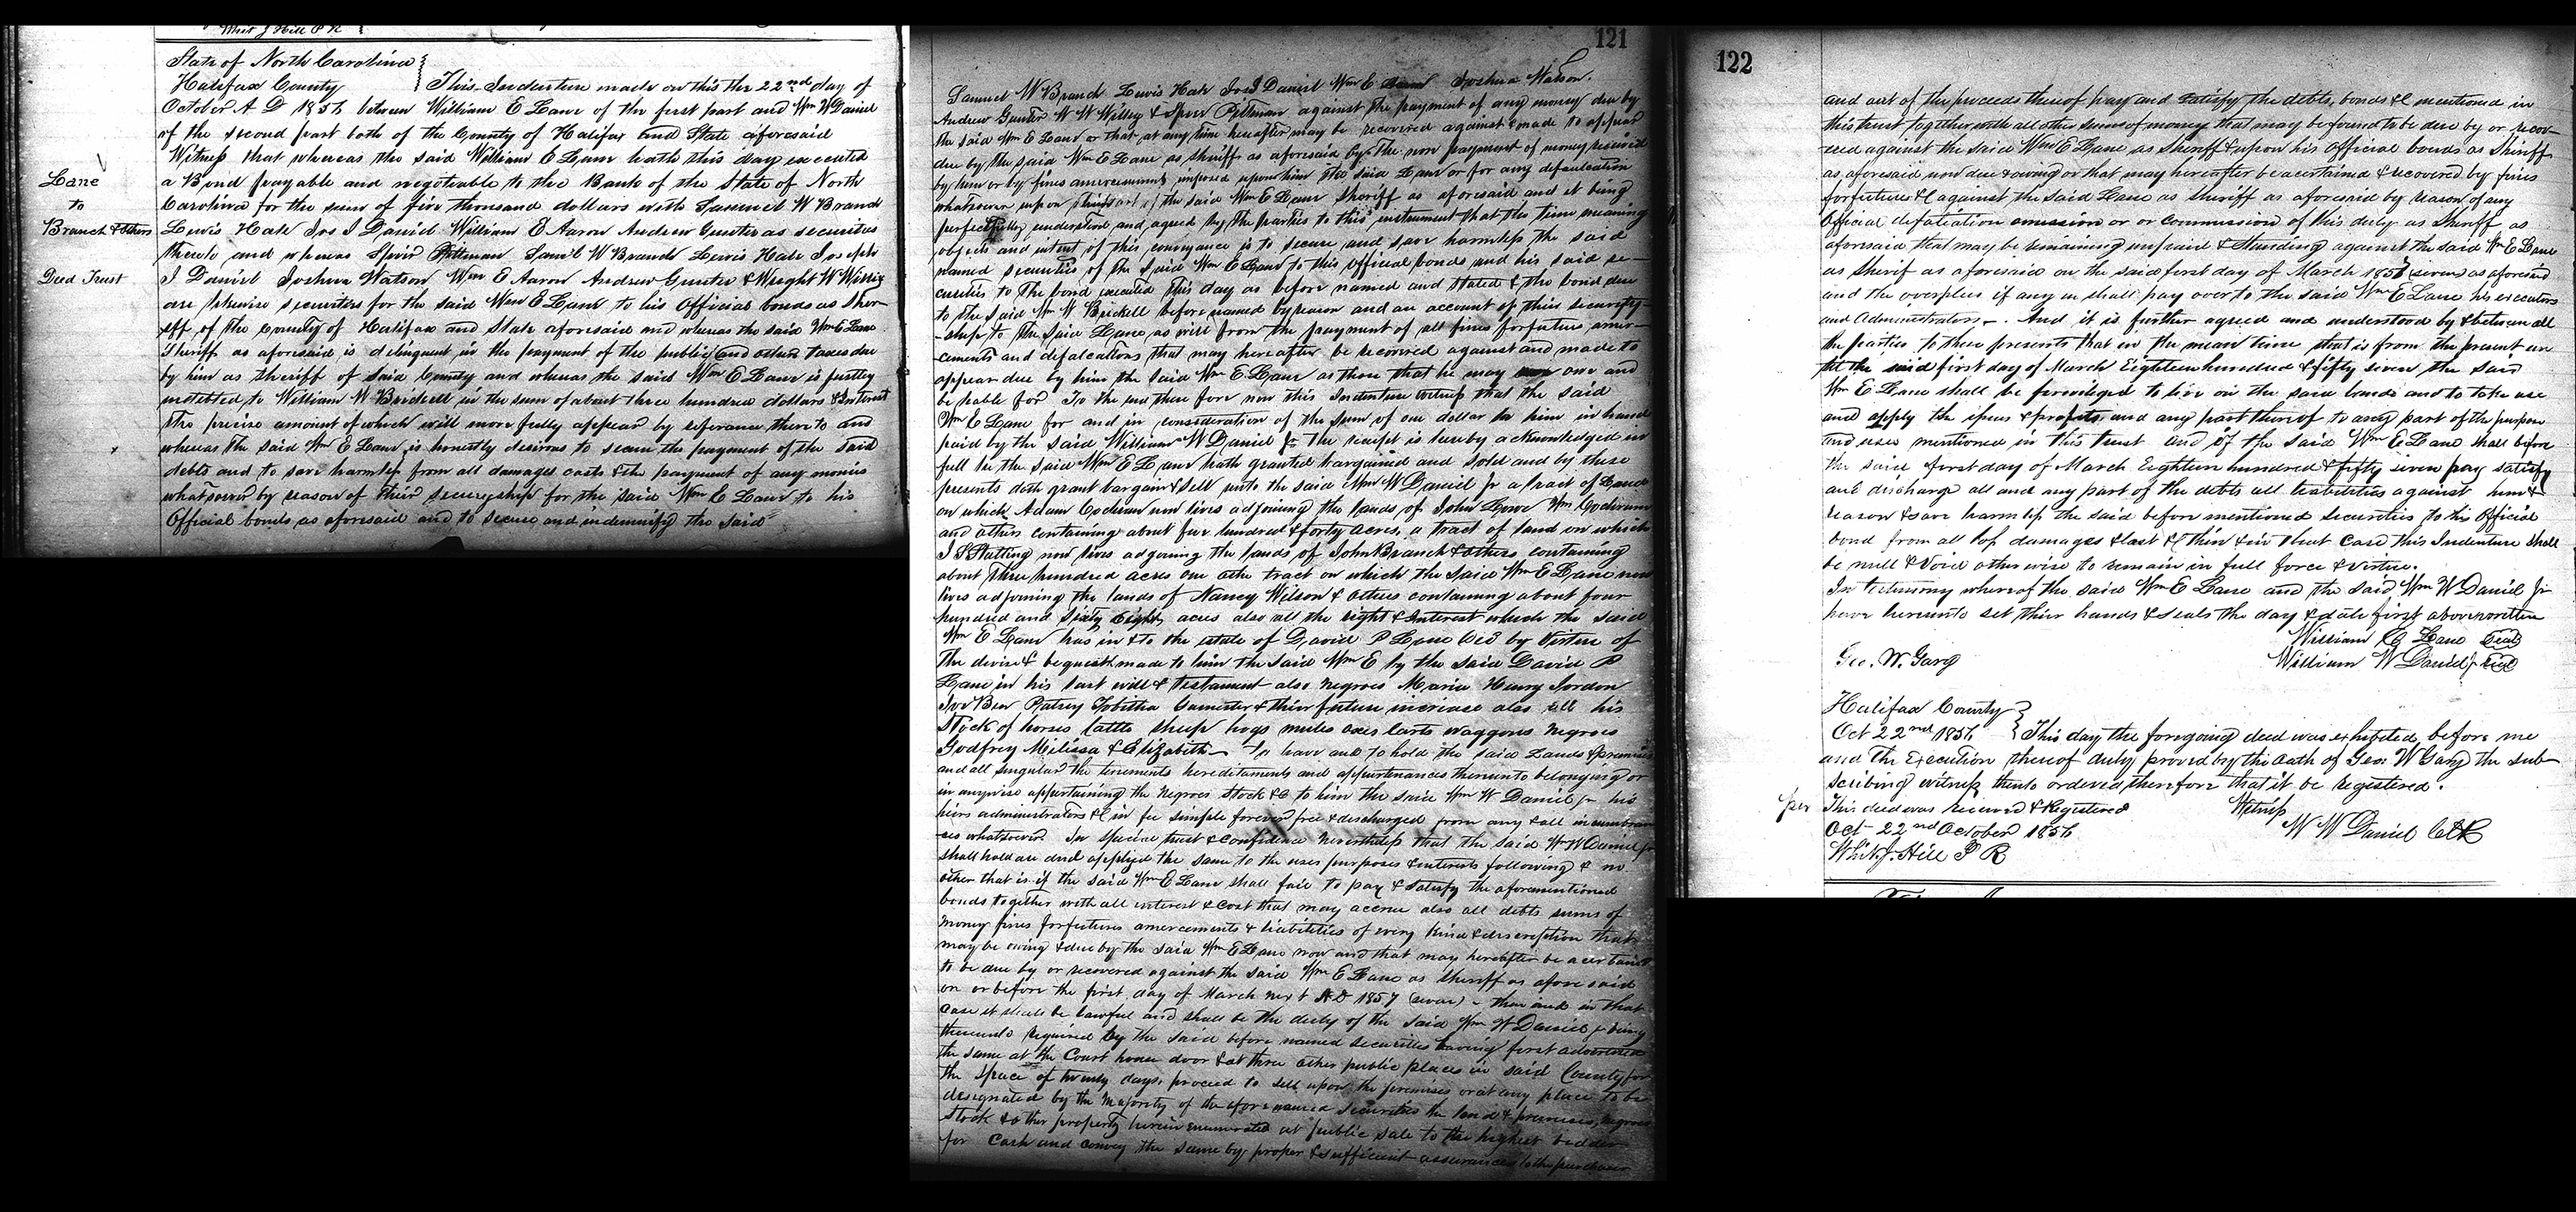 Whit J Hill P R
State of North Carolina
Halifax County } This Indenture made on this the 22nd day of
October A D 1856 between William E Lane of the first part and Wm W Daniel
of the second part both of the County of Halifax and State aforesaid
Witness that whereas the said William E Lane hath this day executed
a Bond payable and negotiable to the Bank of the State of North
Carolina for the sum of five thousand dollars with Samuel W Branch
Lewis Hale Jos J Daniel William E Aaron Andrew Gunter as securities
thereto and whereas Spier Pittman Saml W Branch Lewis Hale Joseph
J Daniel Joshua Watson Wm E Aaron Andrew Gunter & Wright W
are likewise securities for the said Wm E Lane to his Official bonds as Sher-
iff of the County of Halifax and State aforesaid and whereas the said Wm E Lane
Sheriff as aforesaid is delinquent in the payment of the public and other taxes due
by him as Sheriff of said County and whereas the said Wm E Lane is justly
indebted to William W Brickell in the sum of about three hundred dollars & Interest
the precise amount of which will more fully appear by referance there to and
whereas the said Wm E Lane is honestly desirous to secure the payment of the said
debts and to save harmless from all damages costs & the paigment of any monies
whatsoever by reason of their securyship for the said Wm E Lane to his
Official bonds as aforesaid and to secure and indemnify the said
Lane
to
Branch & others
Deed Trust
121
Samuel W Branch Lewis Hale Jos J Daniel Wm E Joshua Watson
Andrew Gunter W W & Spier Pittman against the payment of any money due by
the said Wm E Lane or that at any time hereafter may be recovered against & made to appear
due by the said Wm E Lane as sheriff as aforesaid by the non payment of money received
by him or by fines amercements imposed upon him the said Lane or for any defaulcation
whatsoever upon the said Wm E Lane Sheriff as aforesaid and it being
perfectfully understood and agreed by the parties to this instrument that the true meaning
objects and intent of this conveyance is to secure and save harmless the said
named securities of the said Wm E Lane to this official bonds and his said se-
curities to the bond executed this day as before named and stated & the bond due
to the said Wm W Brickell before named by reason and on account of their security-
ship to the said Lane as well from the payment of all fines forfeiture amer-
cements and defalcations that may hereafter be recovered against and made to
appear due by him the said Wm E Lane as those that he may owe and
be liable for To the end there fore now this Indenture Witness that the said
Wm E Lane for and in consideration of the sum of one dollar to him in hand
paid by the said William W Daniel Jr the receipt is hereby acknowledged in
full he the said Wm E Lane hath granted bargained and sold and by these
presents doth grant bargain & sell unto the said Wm W Daniel jr a tract of Land
on which Adam Cochran now lives adjoining the lands of John Lowe Wm Cochran
and others containing about five hundred & forty acres, a tract of land on which
J S Stalling now lives adjoining the lands of John Branch & others containing
about Three hundred acres one othe tract on which the said Wm E Lane now
lives adjoining the lands of Nancy Wilson & others containing about four
hundred and Sixty Eight acres also all the right & Interest which the said
Wm E Lane has in & to the estate of David P Lane Decd by Virtue of
The devise & bequest made to him the said Wm E by the said David P
Lane in his last will & testament also negroes Maria Henry Jordon
Joe Ben Patsey Tobitha & their future increase also all his
Stock of horses Cattle Sheep hogs mules oxes Carts waggons Negroes
Godfrey Milissa & Elizabeth To have and to hold the said Lands & premises
and all singular the tenements hereditaments and appurtenances thereunto belonging or
in anywise appertaining the Negroes Stock &c to him the said Wm W Daniel jr his
heirs administrators &c in fee simple forever free & discharged from any & all incumbran-
ces whatsoever In special trust & confidence Nevertheless that the said Wm W Daniel jr
shall hold use and applyed the same to the uses purposes & interests following & no
other that is if the said Wm E Lane shall fail to pay & satisfy the aforementioned
bonds together with all interest & cost that may accrue also all debts sums of
money fines forfeitures amercements & liabilities of every kind & description that
may be owing & due by the said Wm E Lane now and that may hereafter be acertained
to be due by or recovered against the said Wm E Lane as Sheriff as afore said
on or before the first day of March next A D 1857 (seven) - then and in that
case it shall be lawful and shall be the duty of the said Wm W Daniel jr being
thereunto required by the said before named securities having first advertised
the same at the Court house door & at three other public places in said County for
the space of twenty days, proceed to sell upon the premises or at any place to be
designated by the Majority of the afore named Securities the land & premises, negroes
Stock & other property herein enumerated at public sale to the highest bidder
for Cash and convey the same by proper & sufficient assurances to the purchaser
122
and out of the proceeds thereof pay and satisfy the debts, bonds &c mentioned in
this trust together with all other sums of money that may be found to be due by or recov-
ered against the said Wm E Lane as Sheriff & upon his official bonds as Sheriff
as aforesaid now due & owing or that may hereafter be ascertained & recovered by fines
forfeitures &c against the said Lane as Sheriff as aforesaid by reason of any
Official defalcation omission or or commission of this duty as Sheriff as
aforesaid that may be remaining unpaid & standing against the said Wm E Lane
as Sherif as aforesaid on the said first day of March 1856 (seven) as aforesaid
and the overplus if any in shall pay over to the said Wm E Lane his executors
and Administrators -. And it is further agreed and understood by & between all
the parties to these presents that in the mean time that is from the present un
til the said first day of March Eighteen hundred & fifty seven the said
Wm E Lane shall be priviliged to live on the said lands and to take use
and apply the issues & profits and any part thereof to any part of the purpose
and uses mentioned in this trust and if the said Wm E Lane shall before
the said first day of March Eighteen hundred & fifty seven pay satisfy
and discharge all and any part of the debts all liabilities against him &
reason & save harmless the said before mentioned securities to his Official
bond from all lop damages & cost &c then & in that case this Indenture shall
be null & void other wise to remain in full force & virtue.
In testimony whereof the said Wm E Lane and the said Wm W Daniel Jr
have hereunto set their hands & seals the day & date first above written
William E Lane Seal
Geo. W. Gary William W Daniel jr Seal
Halifax County
Oct 22nd 1856 } This day the foregoing deed was exhibited before me
and the Execution thereof duly proved by the oath of Geo W Gary the sub-
scribing witness thereto ordered therefore that it be registered.
This deed was received & Registered Witness
Oct 22nd October 1856 W W Daniel Clk
Whit J. Hill P R